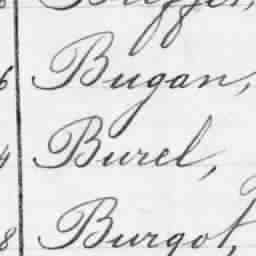 6 Bugan,
4 Burel,
8 Burgot,